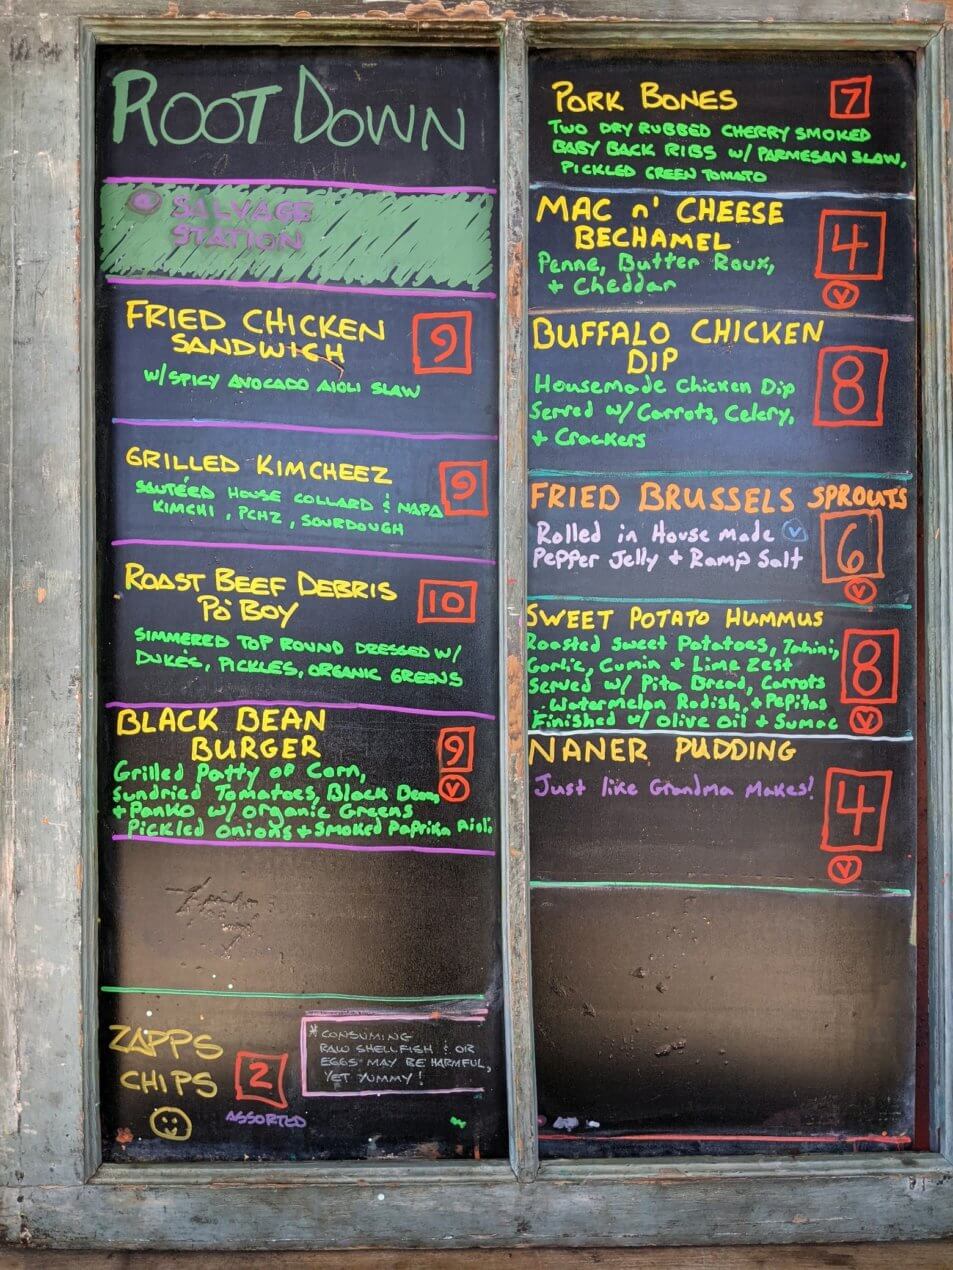 ROOT DOWN
@ SALVAGE
STATION
FRIED CHICKEN
SANDWICH
9
W/SPICY AVOCADO AIOLI SLAW
GRILLED KIMCHEEZ
9
SAUTÉED HOUSE COLLARD & NAPA
KIMCHI, PCHZ, SOURDOUGH
ROAST BEEF DEBRIS
PO' BOY
10
SIMMERED TOP ROUND DRESSED W/
DUKE'S, PICKLES, ORGANIC GREENS
BLACK BEAN
BURGER
9
V
Grilled Patty of Corn,
Sundried Tomatoes, Black Bean,
+ Panko w/ organic Greens
Pickled Onions + Smoked Paprika Aioli
ZAPPS
CHIPS
2
ASSORTED
* CONSUMING
RAW SHELLFISH & OR
EGGS MAY BE HARMFUL,
YET YUMMY!
PORK BONES
7
TWO DRY RUBBED CHERRY SMOKED
BABY BACK RIBS W/ PARMESAN SLAW,
PICKLED GREEN TOMATO
MAC n' CHEESE
BECHAMEL
4
V
Penne, Butter Roux,
+ Cheddar
BUFFALO CHICKEN
DIP
8
Housemade Chicken Dip
Served w/ Carrots, Celery,
+ Crackers
FRIED BRUSSELS SPROUTS
6
V
Rolled in House made V
Pepper Jelly + Ramp Salt
SWEET POTATO HUMMUS
8
V
Roasted Sweet Potatoes, Tahini,
Garlic, Cumin + Lime Zest
Served w/ Pita Bread, Carrots
Watermelon Radish, + Pepitas
Finished w/ Olive Oil + Sumac
NANER PUDDING
4
V
Just like Grandma Makes!